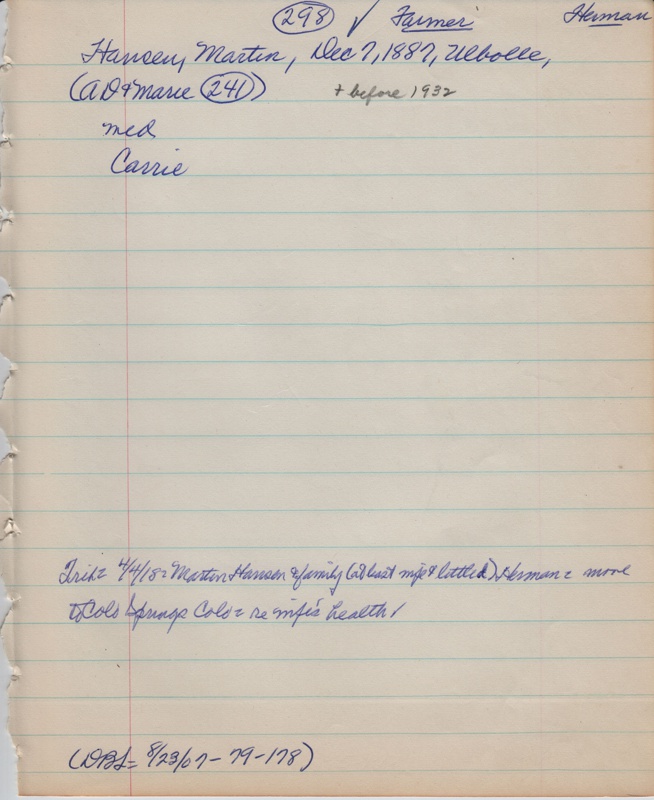 298 ✓ Farmer Herman
Hansen, Martin, Dec 7, 1887, Ulbolle,
(AD & Marie 241)
+ before 1932
med
Carrie
Trib= 4/4/18= Martin Hansen & family (at least wife & little d) Herman= move
to Colo Springs Colo= re wife's health
(DBL= 8/23/07-79-178)